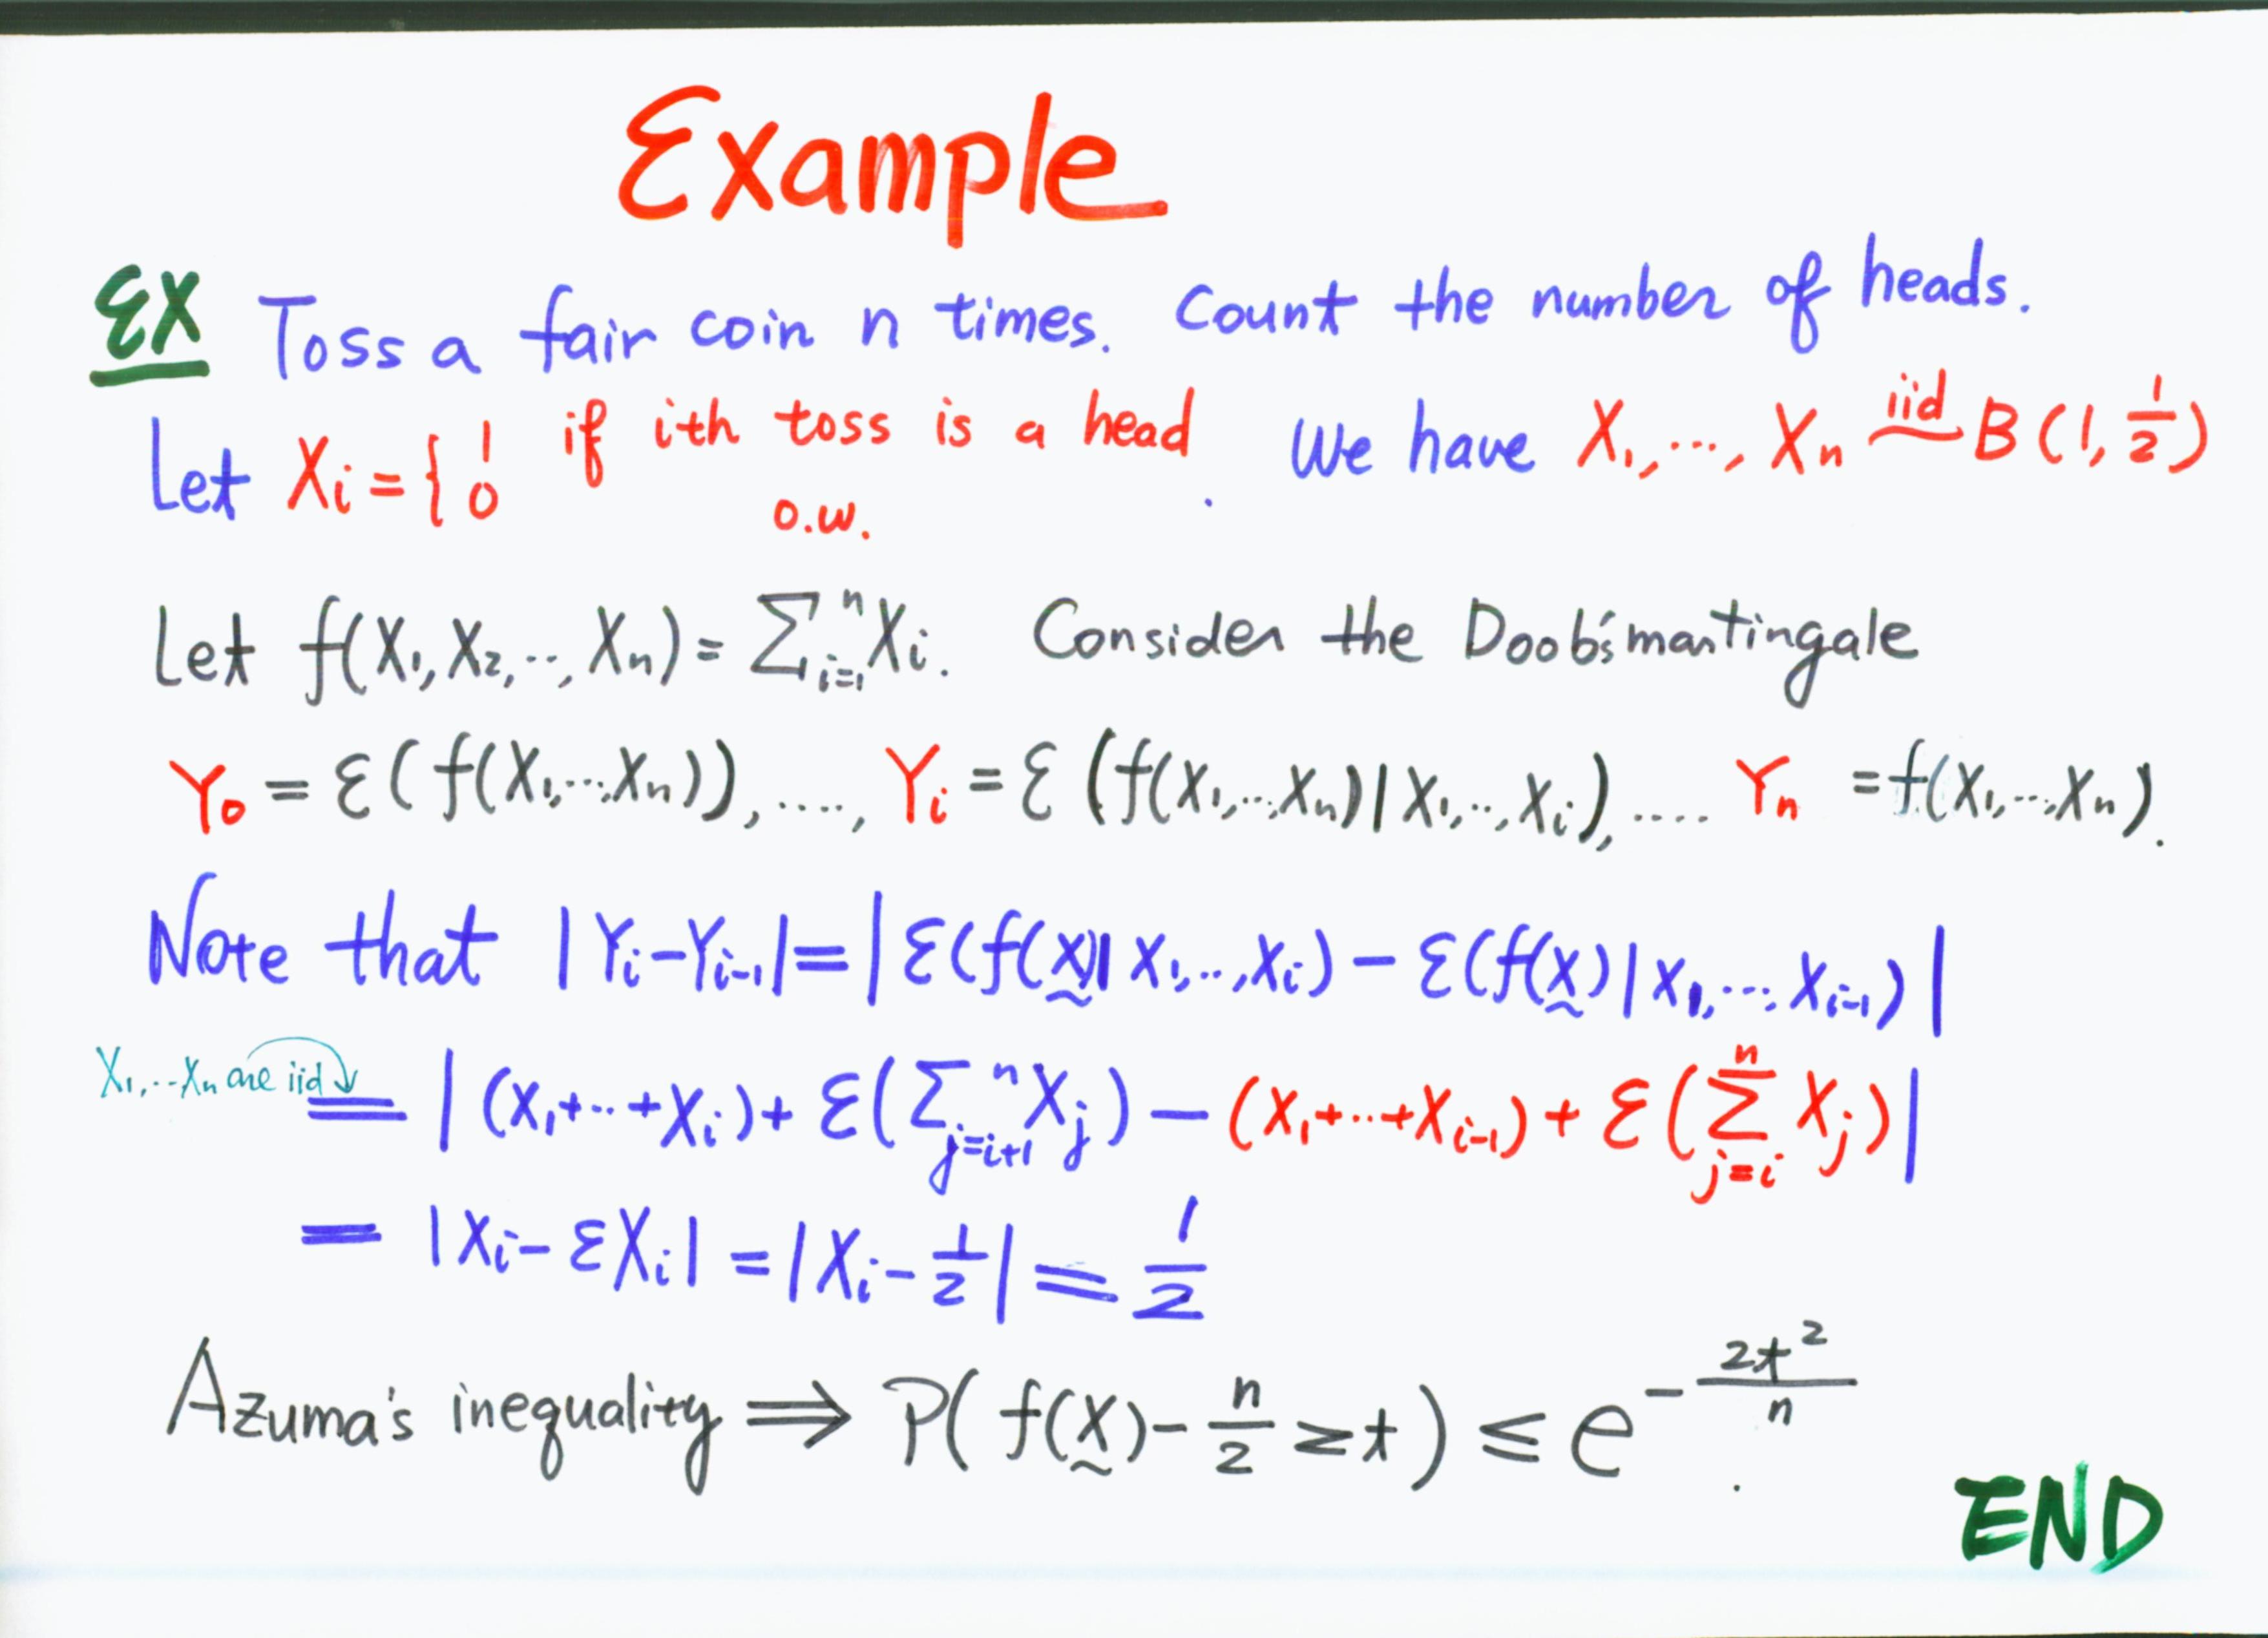 Example
EX Toss a fair coin n times. Count the number of heads.
Let Xᵢ = { 1 if ith toss is a head . We have X₁, ..., Xₙ iid ~ B(1, 1/2)
0 o.w.
Let f(X₁, X₂, .., Xₙ) = Σᵢ₌₁ⁿ Xᵢ. Consider the Doob's martingale
Y₀ = ℰ(f(X₁, ..., Xₙ)), ...., Yᵢ = ℰ(f(X₁, ..., Xₙ) | X₁, .., Xᵢ), .... Yₙ = f(X₁, ..., Xₙ).
Note that |Yᵢ − Yᵢ₋₁| = |ℰ(f(X̰) | X₁, .., Xᵢ) − ℰ(f(X̰) | X₁, ..., Xᵢ₋₁)|
X₁, .. Xₙ are iid ↓
= |(X₁ + ... + Xᵢ) + ℰ(Σⱼ₌ᵢ₊₁ⁿ Xⱼ) − (X₁ + ... + Xᵢ₋₁) + ℰ(Σⱼ₌ᵢⁿ Xⱼ)|
= |Xᵢ − ℰXᵢ| = |Xᵢ − 1/2| = 1/2
Azuma's inequality ⟹ P(f(X̰) − n/2 ≥ t) ≤ e^(−2t²/n).
END